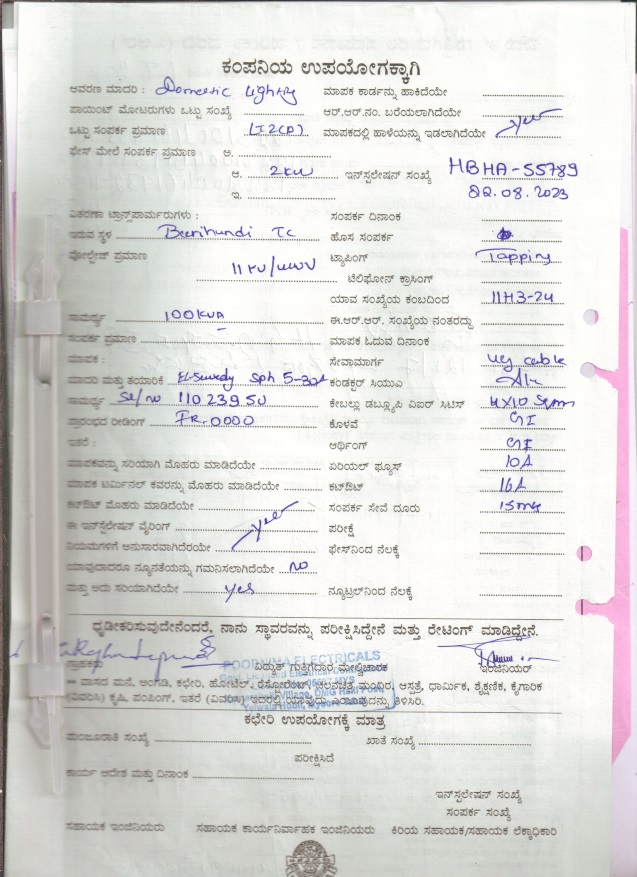 ಕಂಪನಿಯ ಉಪಯೋಗಕ್ಕಾಗಿ
ಆವರಣ ಮಾದರಿ : Domestic Lighting ಮಾಪಕ ಕಾರ್ಡನ್ನು ಹಾಕಿದೆಯೇ
ಪಾಯಿಂಟ್ ಮೋಟರುಗಳು ಒಟ್ಟು ಸಂಖ್ಯೆ ಆರ್.ಆರ್.ನಂ. ಬರೆಯಲಾಗಿದೆಯೇ
ಒಟ್ಟು ಸಂಪರ್ಕ ಪ್ರಮಾಣ ಮಾಪಕದಲ್ಲಿ ಹಾಳೆಯನ್ನು ಇಡಲಾಗಿದೆಯೇ yes
ಫೇಸ್ ಮೇಲೆ ಸಂಪರ್ಕ ಪ್ರಮಾಣ ಎ.
ಆ. 2KW ಇನ್ಸ್ಟಲೇಷನ್ ಸಂಖ್ಯೆ HBHA-55789
ಇ. 22.08.2023
ವಿತರಣಾ ಟ್ರಾನ್ಸ್‌ಫಾರ್ಮರುಗಳು : ಸಂಪರ್ಕ ದಿನಾಂಕ
ಇರುವ ಸ್ಥಳ Beerihundi TC ಹೊಸ ಸಂಪರ್ಕ
ವೋಲ್ಟೇಜ್ ಪ್ರಮಾಣ ಟ್ಯಾಪಿಂಗ್ Tapping
11KV/ ಟೆಲಿಫೋನ್ ಕ್ರಾಸಿಂಗ್
ಯಾವ ಸಂಖ್ಯೆಯ ಕಂಬದಿಂದ 11H3-24
ಸಾಮರ್ಥ್ಯ 100KVA ಈ.ಆರ್.ಆರ್. ಸಂಖ್ಯೆಯ ನಂತರದ್ದು
ಸಂಪರ್ಕ ಪ್ರಮಾಣ ಮಾಪಕ ಓದುವ ದಿನಾಂಕ
ಮಾಪಕ : ಸೇವಾಮಾರ್ಗ UG cable
ಮಾದರಿ ಮತ್ತು ತಯಾರಿಕೆ El-Sewedy Sph 5-30A ಕಂಡಕ್ಟರ್ ಸಿಯುಎ
ಸಾಮರ್ಥ್ಯ Sl/no 11023950 ಕೇಬಲ್ಲು ಡಬ್ಲ್ಯೂಪಿ ಎಐರ್ ಸಿಟಿಸ್ 4X10 Sqmm
ಪ್ರಾರಂಭದ ರೀಡಿಂಗ್ FR.0000 ಕೊಳವೆ GI
ಇತರೆ : ಅರ್ಥಿಂಗ್ GI
ಮಾಪಕವನ್ನು ಸರಿಯಾಗಿ ಮೊಹರು ಮಾಡಿದೆಯೇ ಏರಿಯಲ್ ಫ್ಯೂಸ್ 10A
ಮಾಪಕ ಟರ್ಮಿನಲ್ ಕವರನ್ನು ಮೊಹರು ಮಾಡಿದೆಯೇ ಕಟ್‌ಔಟ್ 16A
ಕಟ್‌ಔಟ್ ಮೊಹರು ಮಾಡಿದೆಯೇ ಸಂಪರ್ಕ ಸೇವೆ ದೂರು
ಈ ಇನ್ಸ್ಟಲೇಷನ್ ವೈರಿಂಗ್ yes ಪರೀಕ್ಷೆ
ನಿಯಮಗಳಿಗೆ ಅನುಸಾರವಾಗಿದೆರಯೇ ಫೇಸ್‌ನಿಂದ ನೆಲಕ್ಕೆ
ಯಾವುದಾದರೂ ನ್ಯೂನತೆಯನ್ನು ಗಮನಿಸಲಾಗಿದೆಯೇ NO
ಮತ್ತು ಅದು ಸರಿಯಾಗಿದೆಯೇ yes ನ್ಯೂಟ್ರಲ್‌ನಿಂದ ನೆಲಕ್ಕೆ
ಧೃಡೀಕರಿಸುವುದೇನೆಂದರೆ, ನಾನು ಸ್ಥಾವರವನ್ನು ಪರೀಕ್ಷಿಸಿದ್ದೇನೆ ಮತ್ತು ರೇಟಿಂಗ್ ಮಾಡಿದ್ದೇನೆ.
ಗ್ರಾಹಕರು ವಿದ್ಯುತ್ ಗುತ್ತಿಗೆದಾರ ಮೇಲ್ವಿಚಾರಕ ಇಂಜಿನಿಯರ್
POORNIMA ELECTRICALS
ವಾಸದ ಮನೆ, ಅಂಗಡಿ, ಕಛೇರಿ, ಹೋಟೆಲ್, ರೆಸ್ಟೋರೆಂಟ್, ಚಲನಚಿತ್ರ ಮಂದಿರ, ಆಸ್ಪತ್ರೆ, ಧಾರ್ಮಿಕ, ಶೈಕ್ಷಣಿಕ, ಕೈಗಾರಿಕ
(ವಿವರಿಸಿ) ಕೃಷಿ, ಪಂಪಿಂಗ್, ಇತರೆ (ವಿವರಿಸಿ) ಇದರಲ್ಲಿ ಯಾವುದು ಎಂಬುದನ್ನು ತಿಳಿಸಿರಿ.
ಕಛೇರಿ ಉಪಯೋಗಕ್ಕೆ ಮಾತ್ರ
ಮಂಜೂರಾತಿ ಸಂಖ್ಯೆ ಖಾತೆ ಸಂಖ್ಯೆ
ಪರೀಕ್ಷಿಸಿದೆ
ಕಾರ್ಯ ಆದೇಶ ಮತ್ತು ದಿನಾಂಕ
ಇನ್ಸ್ಟಲೇಷನ್ ಸಂಖ್ಯೆ
ಸಂಪರ್ಕ ಸಂಖ್ಯೆ
ಸಹಾಯಕ ಇಂಜಿನಿಯರು ಸಹಾಯಕ ಕಾರ್ಯನಿರ್ವಾಹಕ ಇಂಜಿನಿಯರು ಕಿರಿಯ ಸಹಾಯಕ/ಸಹಾಯಕ ಲೆಕ್ಕಾಧಿಕಾರಿ